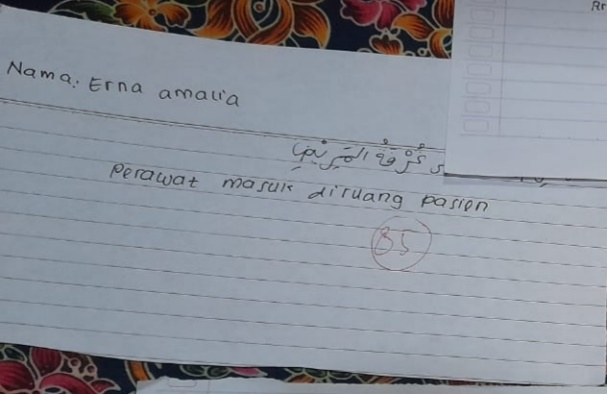 Rr
Nama: Erna amalia
غُرْفَةِ الْمَرِيْضِ
Perawat masuk diruang pasien
85